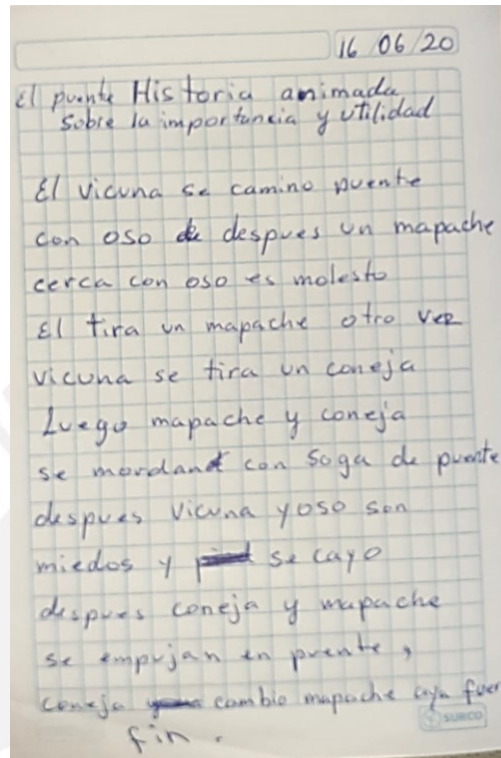 16 06 20
El puente Historia animada
Sobre la importancia y utilidad
El vicuna se camino puente
con oso de despues un mapache
cerca con oso es molesto
El tira un mapache otro vez
vicuna se tira un coneja
Luego mapache y coneja
se mordand con soga de puente
despues vicuna y oso son
miedos y se cayo
despues coneja y mapache
se empujan en puente,
coneja cambio mapache fuer
fin.
SURCO